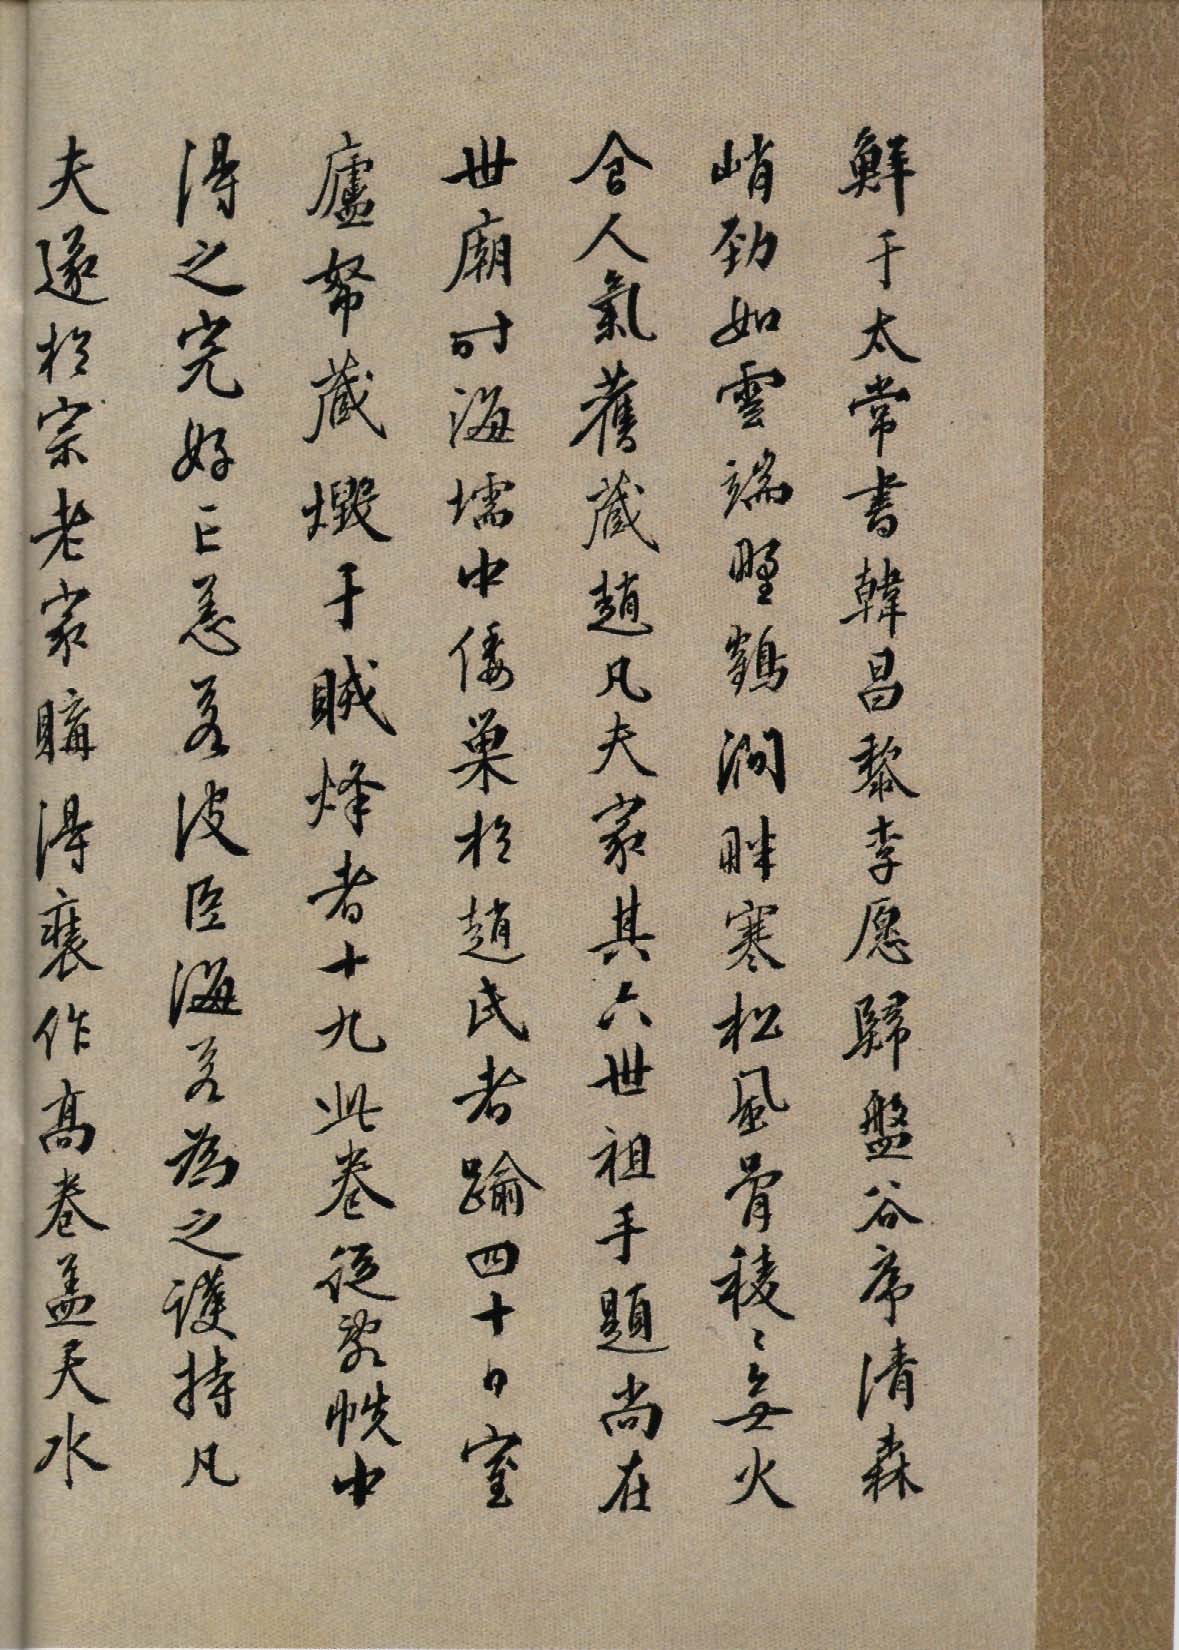 鮮于太常書韓昌黎李愿歸盤谷序清森
峭勁如雲端野鶴澗畔寒松風骨稜〻無火
食人氣舊藏趙凡夫家其六世祖手題尚在
世廟時海壖中倭巢於趙氏者踰四十日室
廬帑藏燬于賊烽者十九此卷從敗帙中
得之完好亡恙若波臣海若為之護持凡
夫遂於宗老家購得裝作高卷盖天水